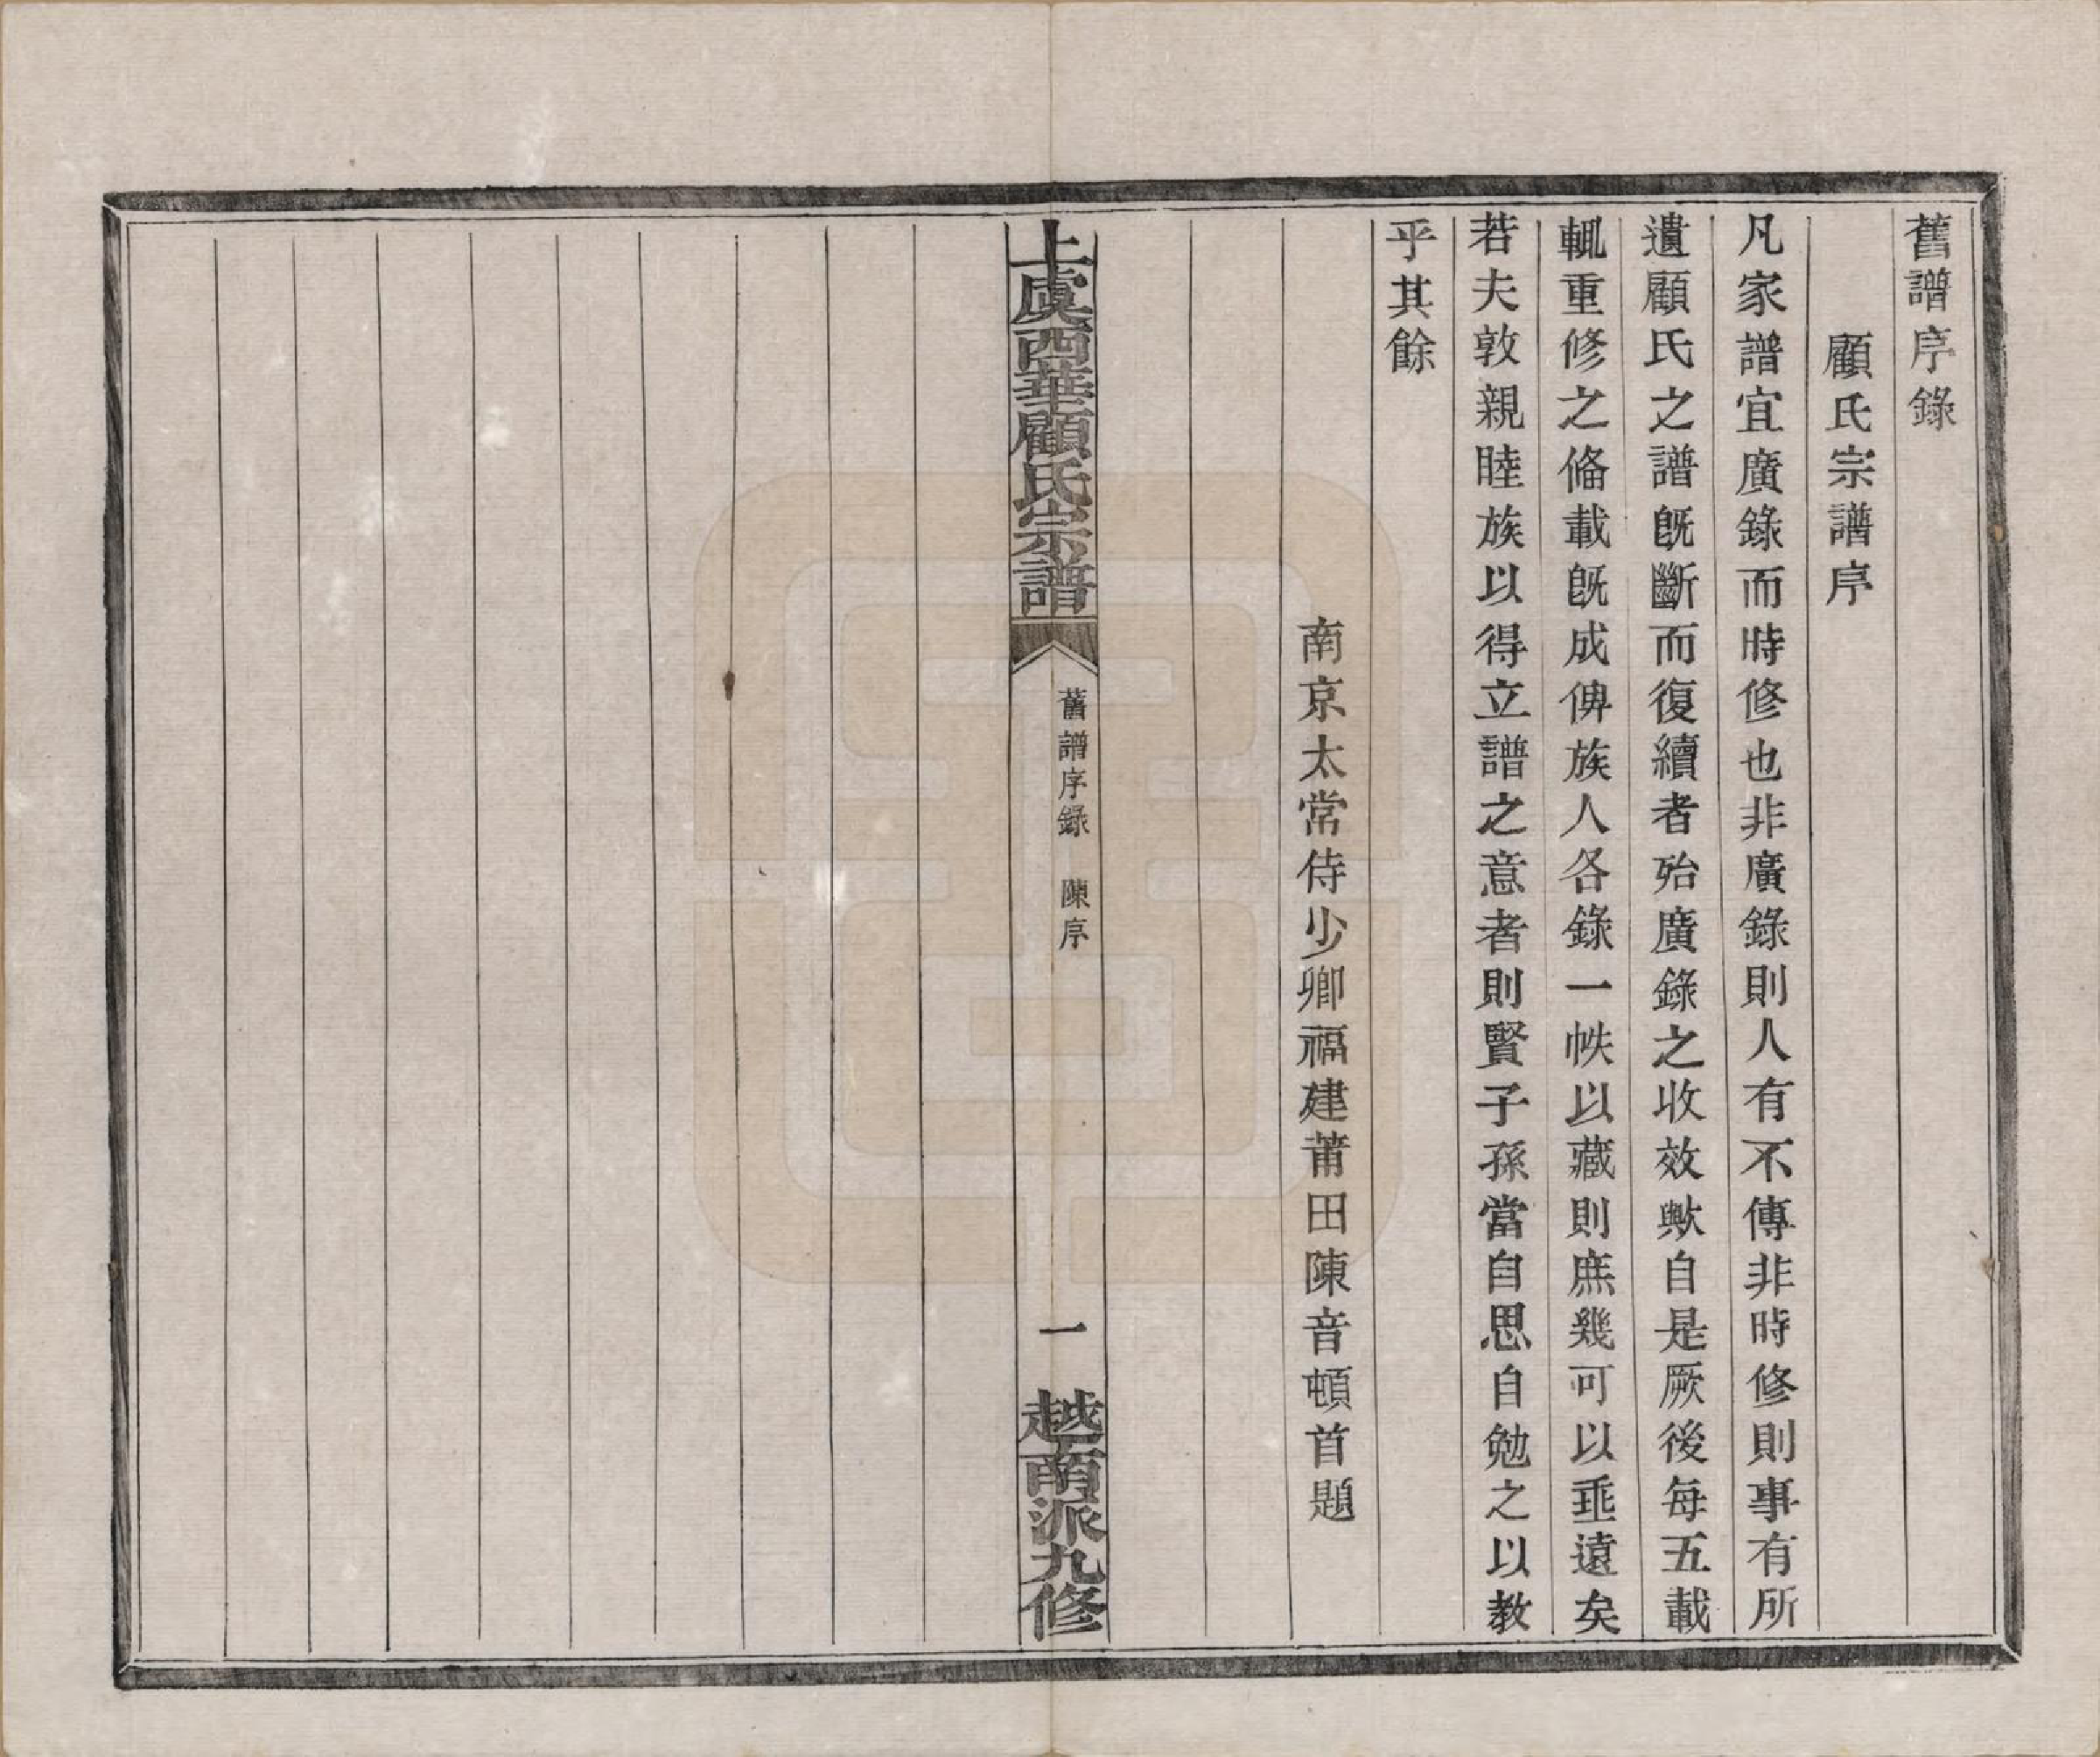 舊譜序錄
顧氏宗譜序
凡家譜宜廣錄而時修也非廣錄則人有不傳非時修則事有所
遺顧氏之譜旣斷而復續者殆廣錄之收效歟自是厥後每五載
輒重修之俻載旣成俾族人各錄一帙以藏則庶幾可以垂遠矣
若夫敦親睦族以得立譜之意者則賢子孫當自思自勉之以教
乎其餘
南京太常侍少卿福建莆田陳音頓首題
上虞西華顧氏宗譜
舊譜序錄 陳序
一
越南派九修